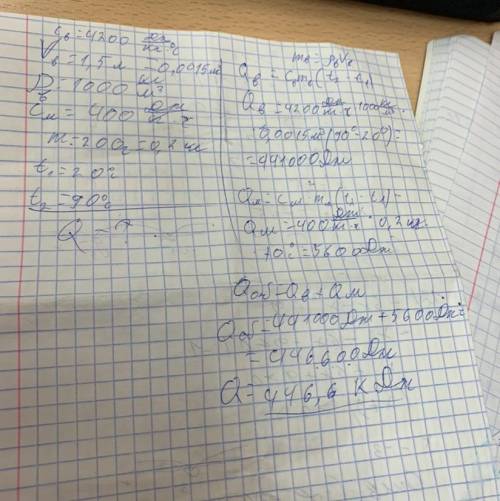 cв = 4200 Дж/кг·°C
Vв = 1,5 л = 0,0015 м³
ρв = 1000 кг/м³
cм = 400 Дж/кг·°C
m = 200 г = 0,2 кг
t₁ = 20°C
t₂ = 90°C
Q - ?
mв = ρвVв
Qв = cвmв(t₂ - t₁)
Qв = 4200 Дж/кг·°C · 1000 кг/м³ ·
0,0015 м³ (90° - 20°) =
= 441000 Дж
Qм = cм · mм (t₂ - t₁) =
Qм = 400 Дж/кг·°C · 0,2 кг ·
70°C = 5600 Дж
Qоб = Qв + Qм
Qоб = 441000 Дж + 5600 Дж =
= 446600 Дж
Q = 446,6 кДж